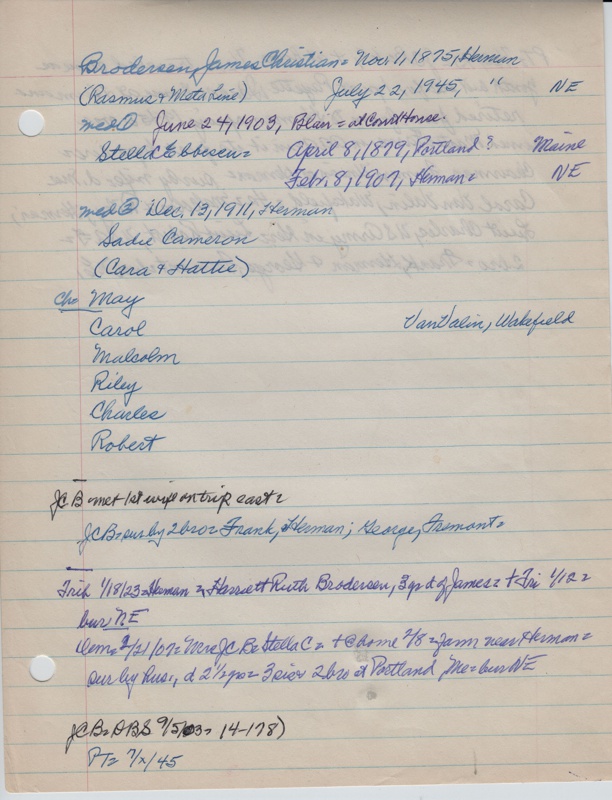 Brodersen, James Christian = Nov. 1, 1875, Herman
(Rasmus & Meta Line) July 22, 1945, " NE
med ① June 24, 1903, Blair = at Court House.
Stella C Ebbesen = April 8, 1879, Portland? Maine
Febr. 8, 1907, Herman = NE
med ② Dec. 13, 1911, Herman
Sadie Cameron
(Cara & Hattie)
Ch = May
Carol VanValin, Wakefield
Malcolm
Riley
Charles
Robert
JCB = met 1st wife on trip east =
JCB = sur by 2 bro = Frank, Herman; George, Fremont =
Trib 1/18/23 = Herman = Harriett Ruth Brodersen, 3 yr d of James = + Fri 1/12 =
bur NE
Dem = 2/21/07 = Mrs JC B = Stella C = + @ home 2/8 = farm near Herman =
sur by hus., d 2½ yrs = 3 sis & 2 bro at Portland Me = bur NE
JCB = DBS 9/5/03 = 14-178)
PT = 7/x/45